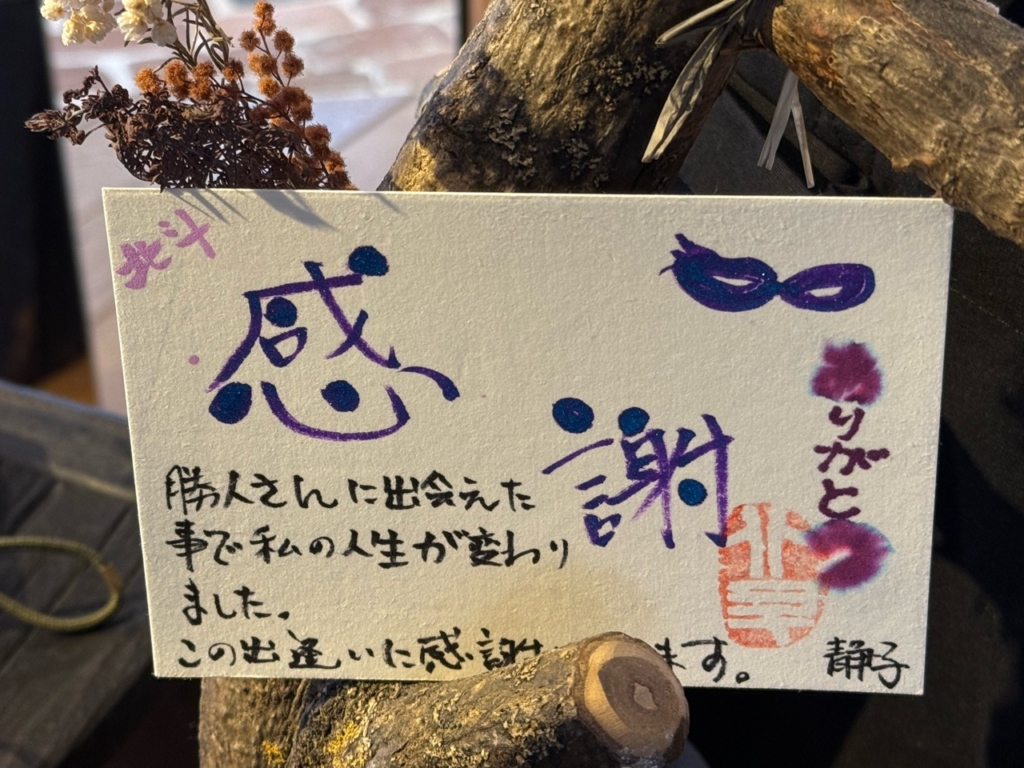 北斗
感謝
ありがとう
勝人さんに出会えた
事で私の人生が変わり
ました。
この出逢いに感謝 ます。
静子